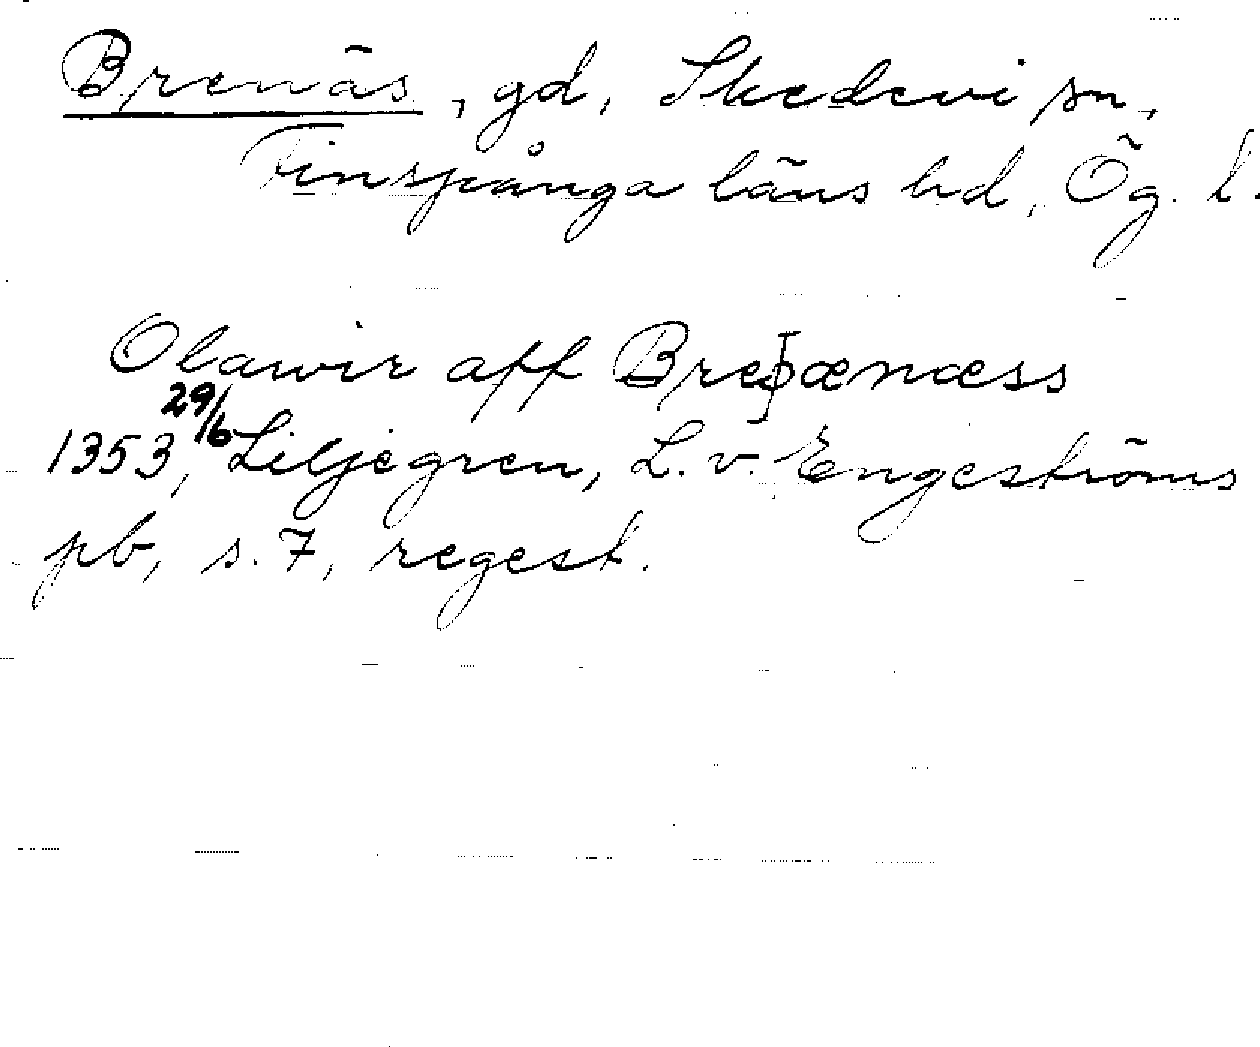 Brenäs, gd, Skedevi sn,
Finspånga läns hd, Ög. l.
Olawir aff Breþænæss
1353, 29/6 Liljegren, L. v. Engeströms
pb, s. 7, regest.